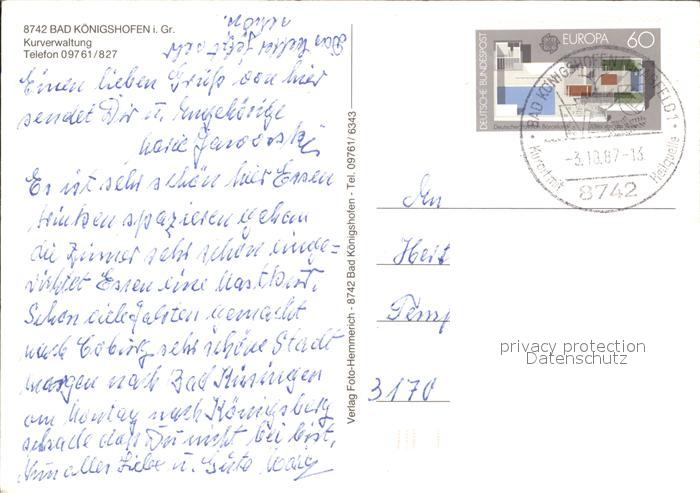 8742 BAD KÖNIGSHOFEN i. Gr.
Kurverwaltung
Telefon 09761/827
Einen lieben Gruß von hier
sendet Dir u. Angehörige
Es ist sehr schön hier Essen
trinken spazieren gehen
die Zimmer sehr schön einge=
richtet Essen eine
Schon gemacht
nach Coburg sehr schöne Stadt
morgen nach Bad Kissingen
am Montag nach Königsberg
schade daß Du nicht bei bist,
Nun alles Liebe u. Gute
Verlag Foto-Hemmerich - 8742 Bad Königshofen - Tel. 09761/6343
DEUTSCHE BUNDESPOST
EUROPA 60
BAD KÖNIGSHOFEN I. GRABFELD 1
-3.10.87-13
8742
Kurort mit Heilquelle
An
3170
privacy protection
Datenschutz